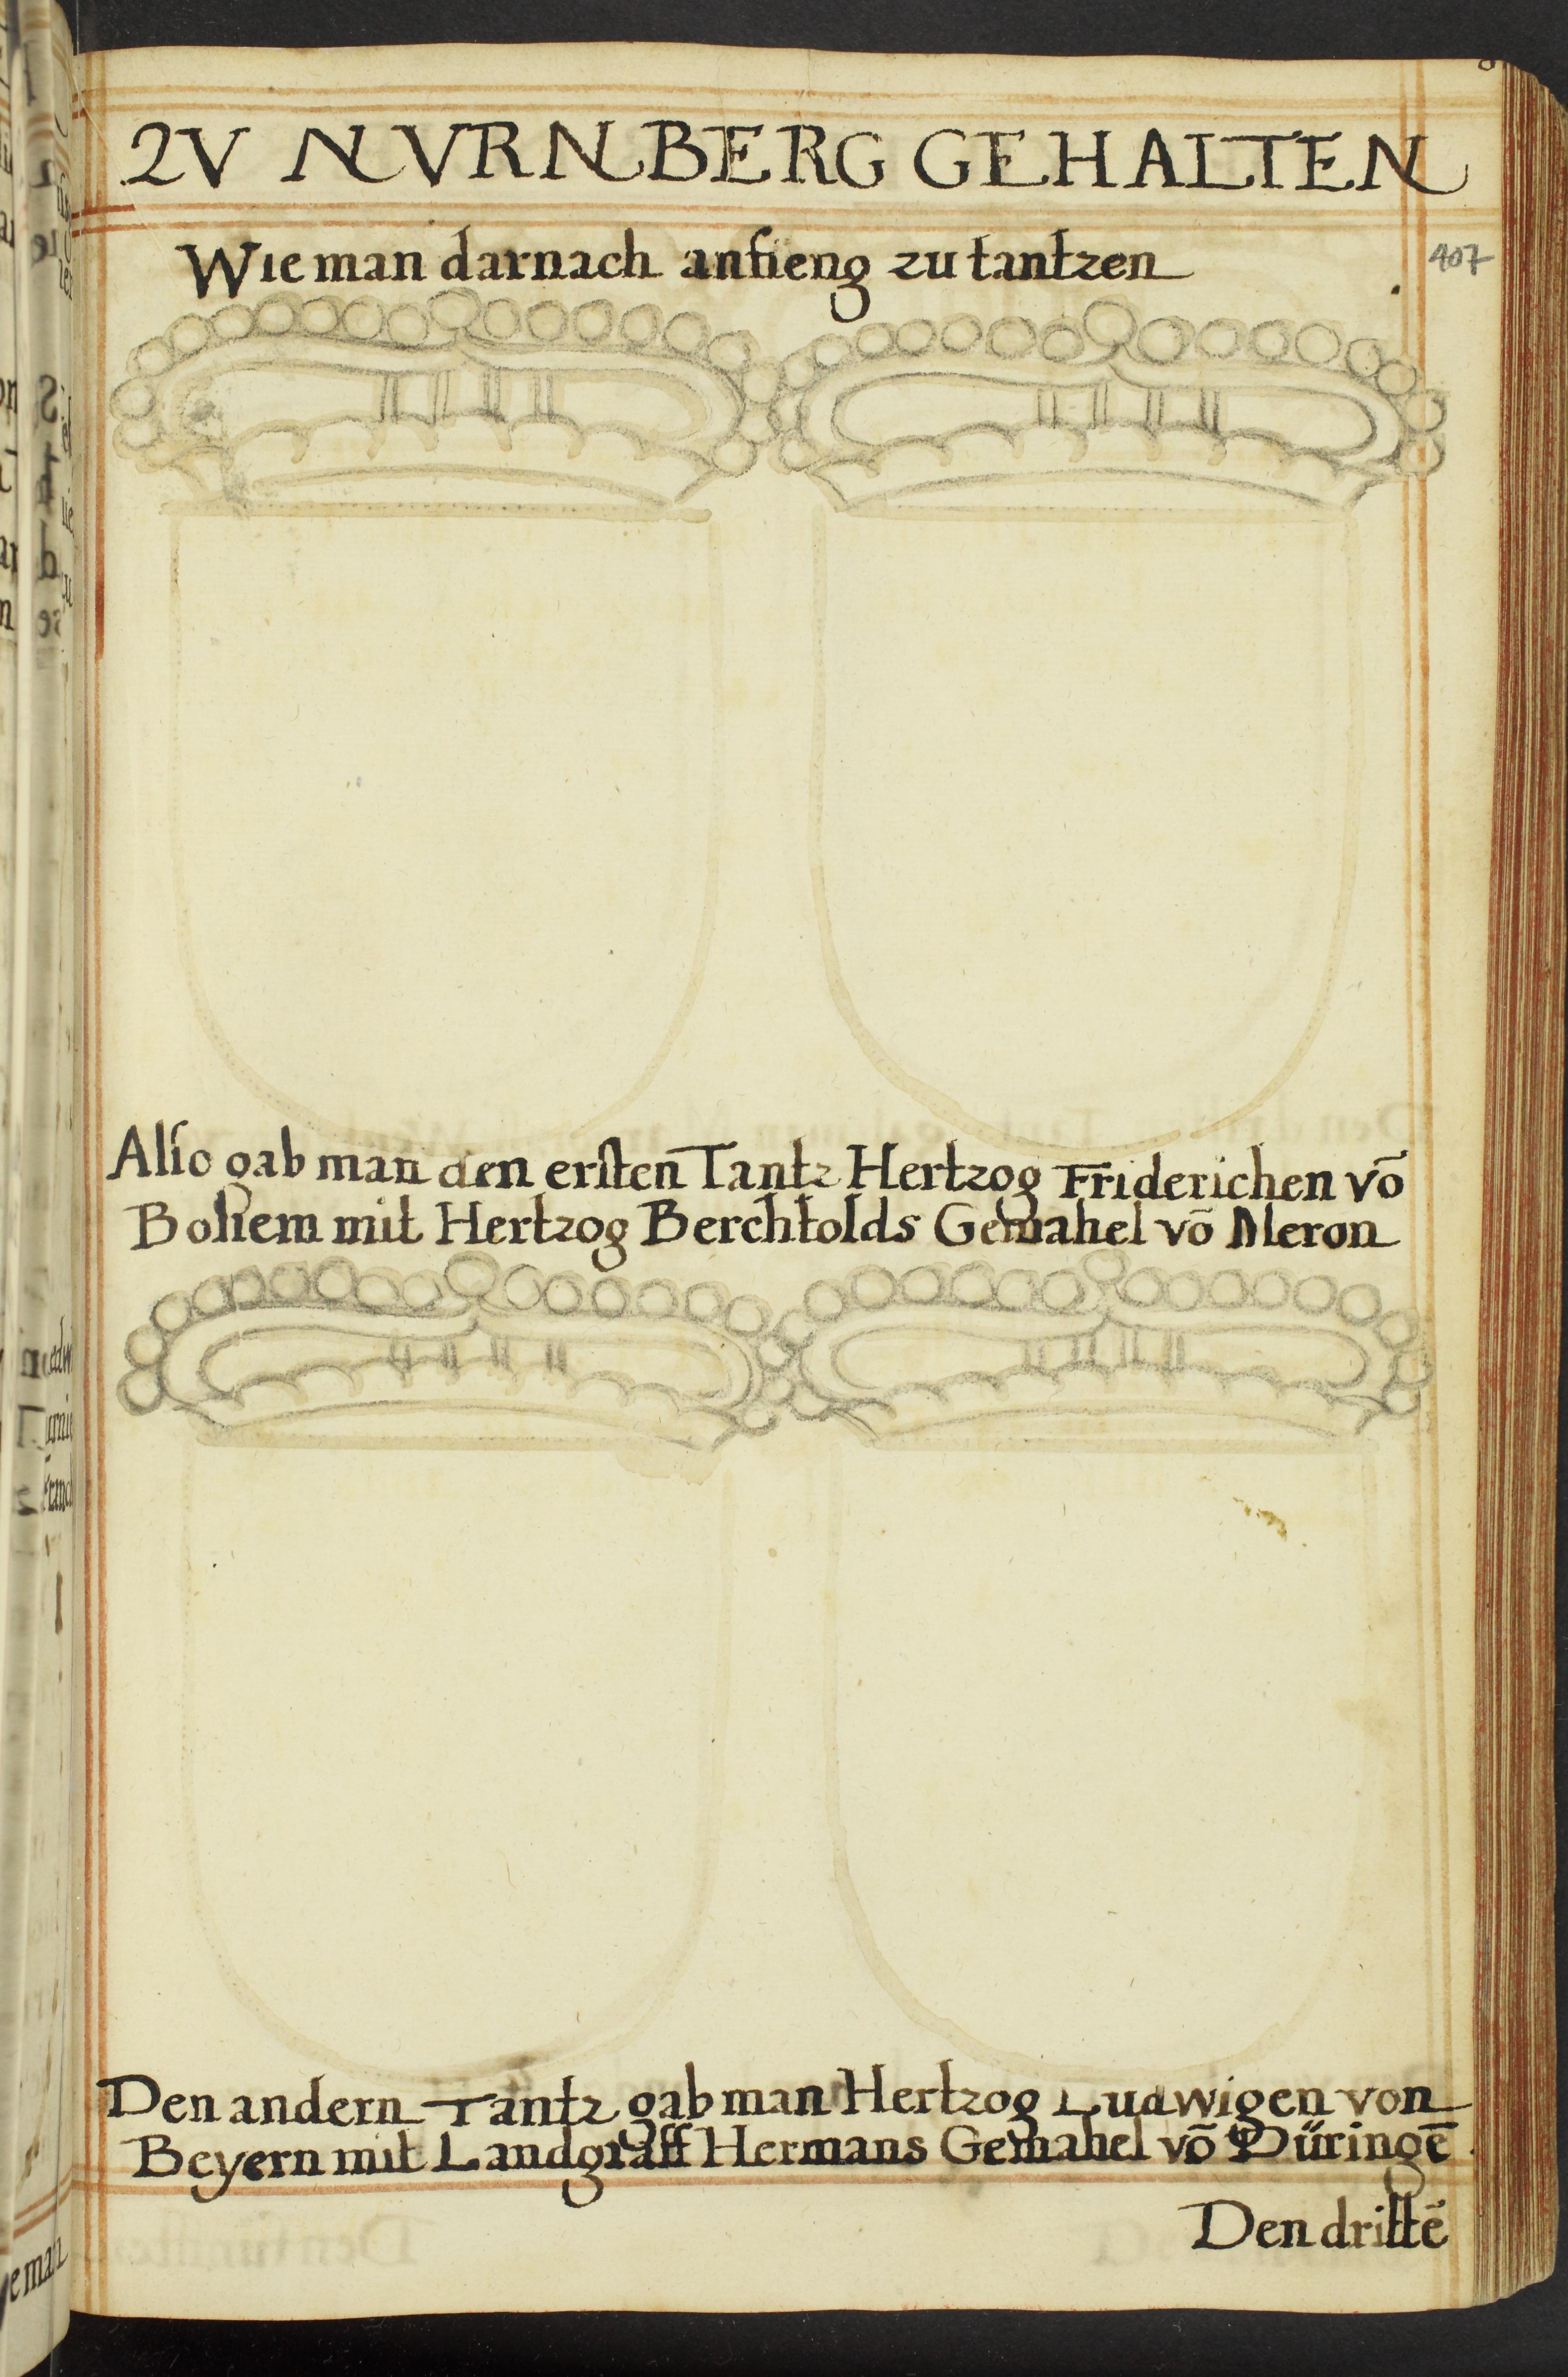 ZV NVRNBERG GEHALTEN
Wie man darnach anfieng zu tantzen
407
Also gab man den ersten Tantz Hertzog Friderichen vō
Bohem mit Hertzog Berchtolds Gemahel vō Meron
Den andern Tantz gab man Hertzog Ludwigen von
Beyern mit Landgraff Hermans Gemahel vō Düringē
Den drittē